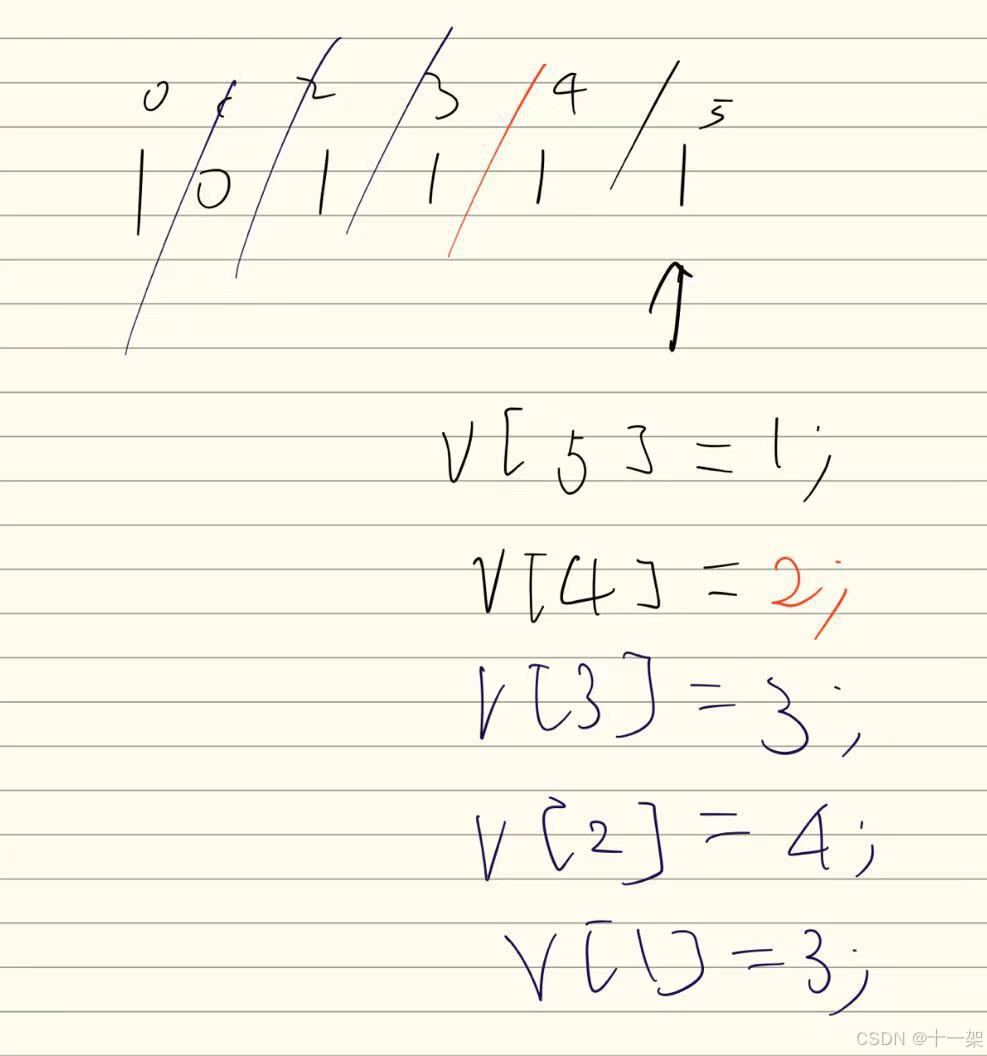 0 1 2 3 4 5
1 0 1 1 1 1
V[5]=1;
V[4]=2;
V[3]=3;
V[2]=4;
V[1]=3;
CSDN @十一架